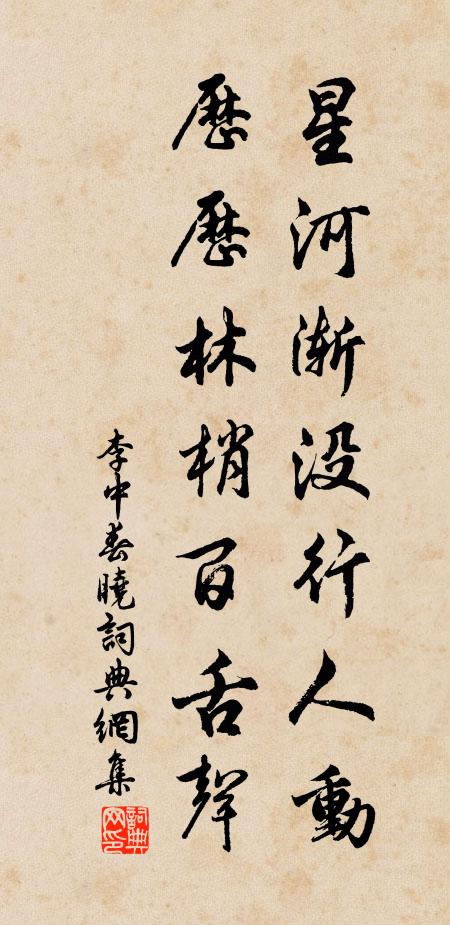 星河渐没行人動
歷歷林梢百舌聲
李中春曉詞典網集
詞典網印